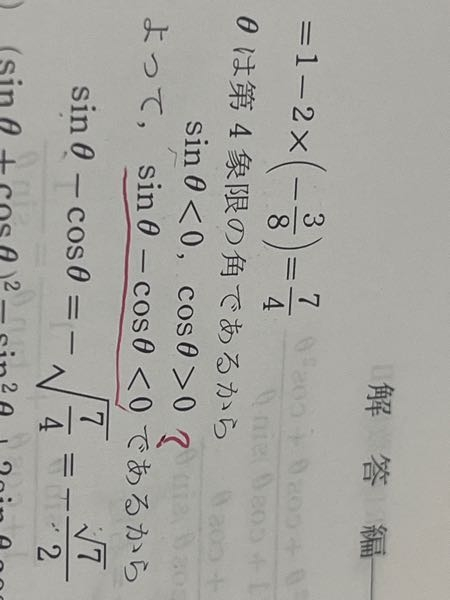 解答編
=1−2×(−3/8)=7/4
θは第4象限の角であるから
sinθ<0, cosθ>0 ?
よって, sinθ−cosθ<0であるから
sinθ−cosθ=−√(7/4)=−√7/2
(sinθ+cosθ)²=sin²θ+2sinθcos